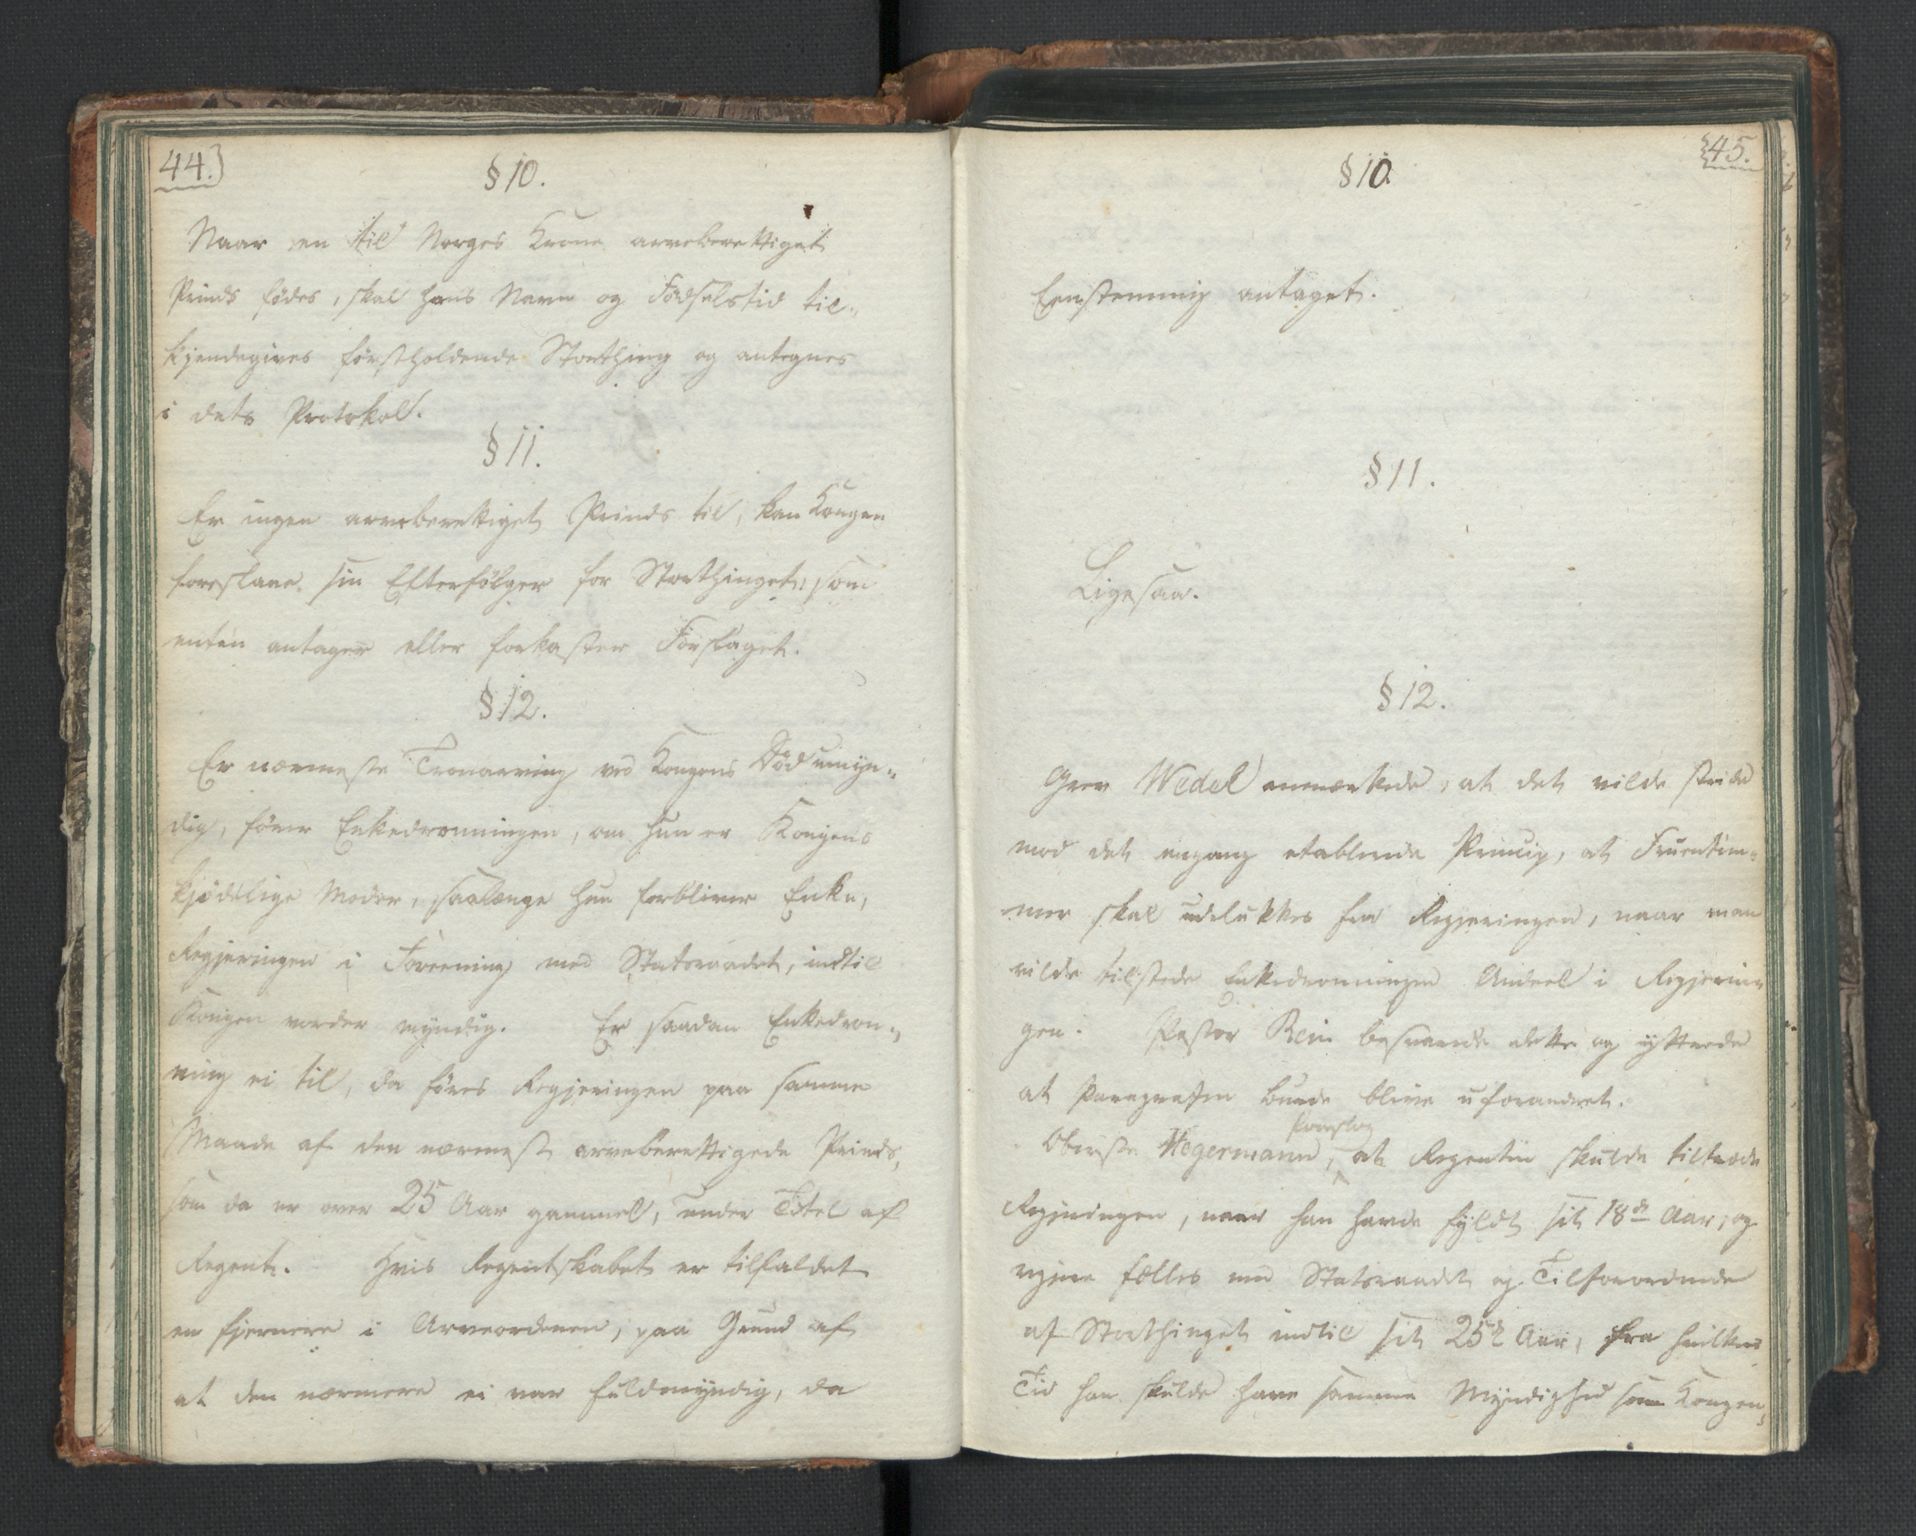 44.)
§ 10.
Naar en til Norges Krone arveberettiget
Prinds fødes, skal hans Navn og Fødselstid til-
kjendegives førstholdende Storthing og antegnes
i dets Protokol.
§ 11.
Er ingen arveberettiget Prinds til, kan Kongen
foreslaae sin Efterfølger for Storthinget, som
enten antager eller forkaster Forslaget.
§ 12.
Er nærmeste Tronarving ved Kongens Død umyn-
dig, fører Enkedronningen, om hun er Kongens
kjødelige Moder, saalænge hun forbliver Enke,
Regjeringen i Foreening med Statsraadet, indtil
Kongen vorder myndig. Er saadan Enkedron-
ning ei til, da føres Regjeringen paa samme
Maade af den nærmest arveberettigede Prinds,
som da er over 25 Aar gammel, under Titel af
Regent. Hvis Regentskabet er tilfaldet
en fjernere i Arveordenen, paa Grund af
at den nærmere ei var fuldmyndig, da
45.
§ 10
Eenstemmig antaget.
§ 11.
Ligesaa.
§ 12.
Grev Wedel anmærkede, at det vilde stride
mod det engang etablerede Princip, at Fruentim-
mer skal udelukkes fra Regjeringen, naar man
vilde tilstede Enkedronningen Andeel i Regjerin-
gen. Pastor Rein besvarede dette og yttrede
at Paragrafen burde blive uforandret.
Oberste Hegermann, foreslog at Regenten skulde tiltræde
Regjeringen, naar han havde fyldt sit 18de Aar, og
regjere fælles med Statsraadet og Tilforordnede
af Storthinget indtil sit 25de Aar, fra hvilken
Tid han skulde have samme Myndighed som Kongen,